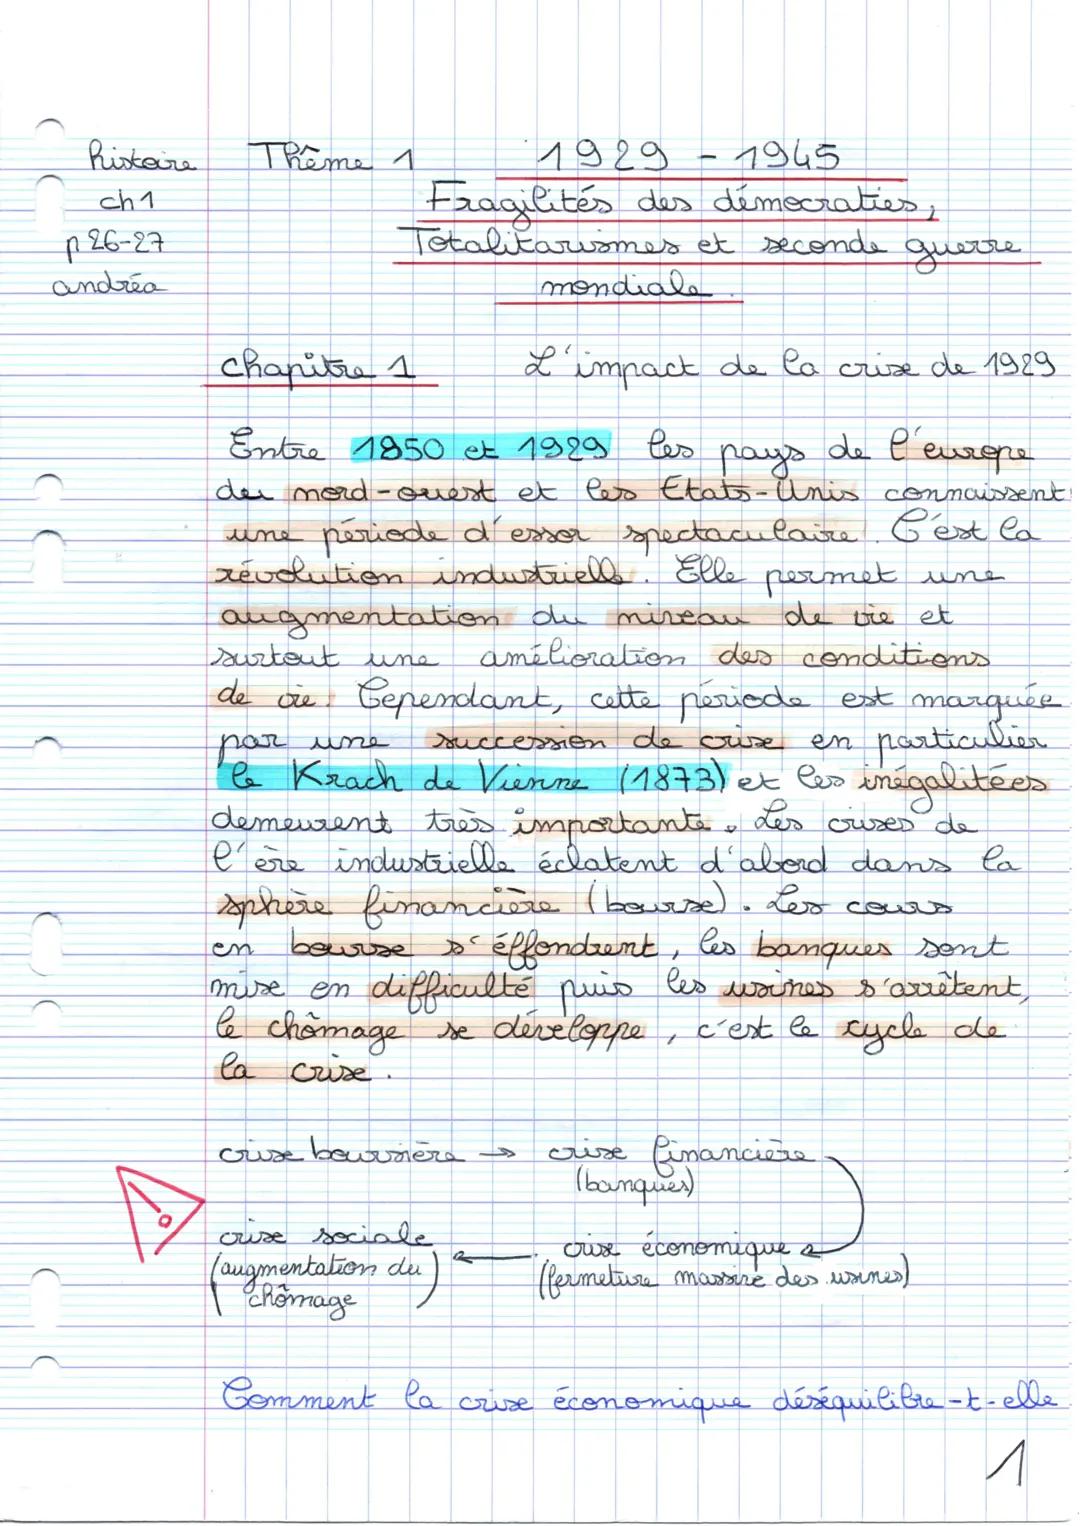 histoire Thème 1 1929 - 1945
ch 1 Fragilités des démocraties,
p 26-27 Totalitarismes et seconde guerre
andréa mondiale.
chapitre 1 L'impact de la crise de 1929
Entre 1850 et 1929 les pays de l'europe
du nord-ouest et les Etats-Unis connaissent
une période d'essor spectaculaire. C'est la
révolution industrielle. Elle permet une
augmentation du niveau de vie et
surtout une amélioration des conditions
de vie. Cependant, cette période est marquée
par une succession de crise en particulier
le Krach de Vienne (1873) et les inégalitées
demeurent très importante. Les crises de
l'ère industrielle éclatent d'abord dans la
sphère financière (bourse). Les cours
en bourse s'éffondrent, les banques sont
mise en difficulté puis les usines s'arrêtent,
le chômage se développe, c'est le cycle de
la crise.
crise boursière → crise financière
(banques)
crise sociale ← crise économique
(augmentation du (fermeture massive des usines)
chômage)
!
Comment la crise économique déséquilibre-t-elle
1